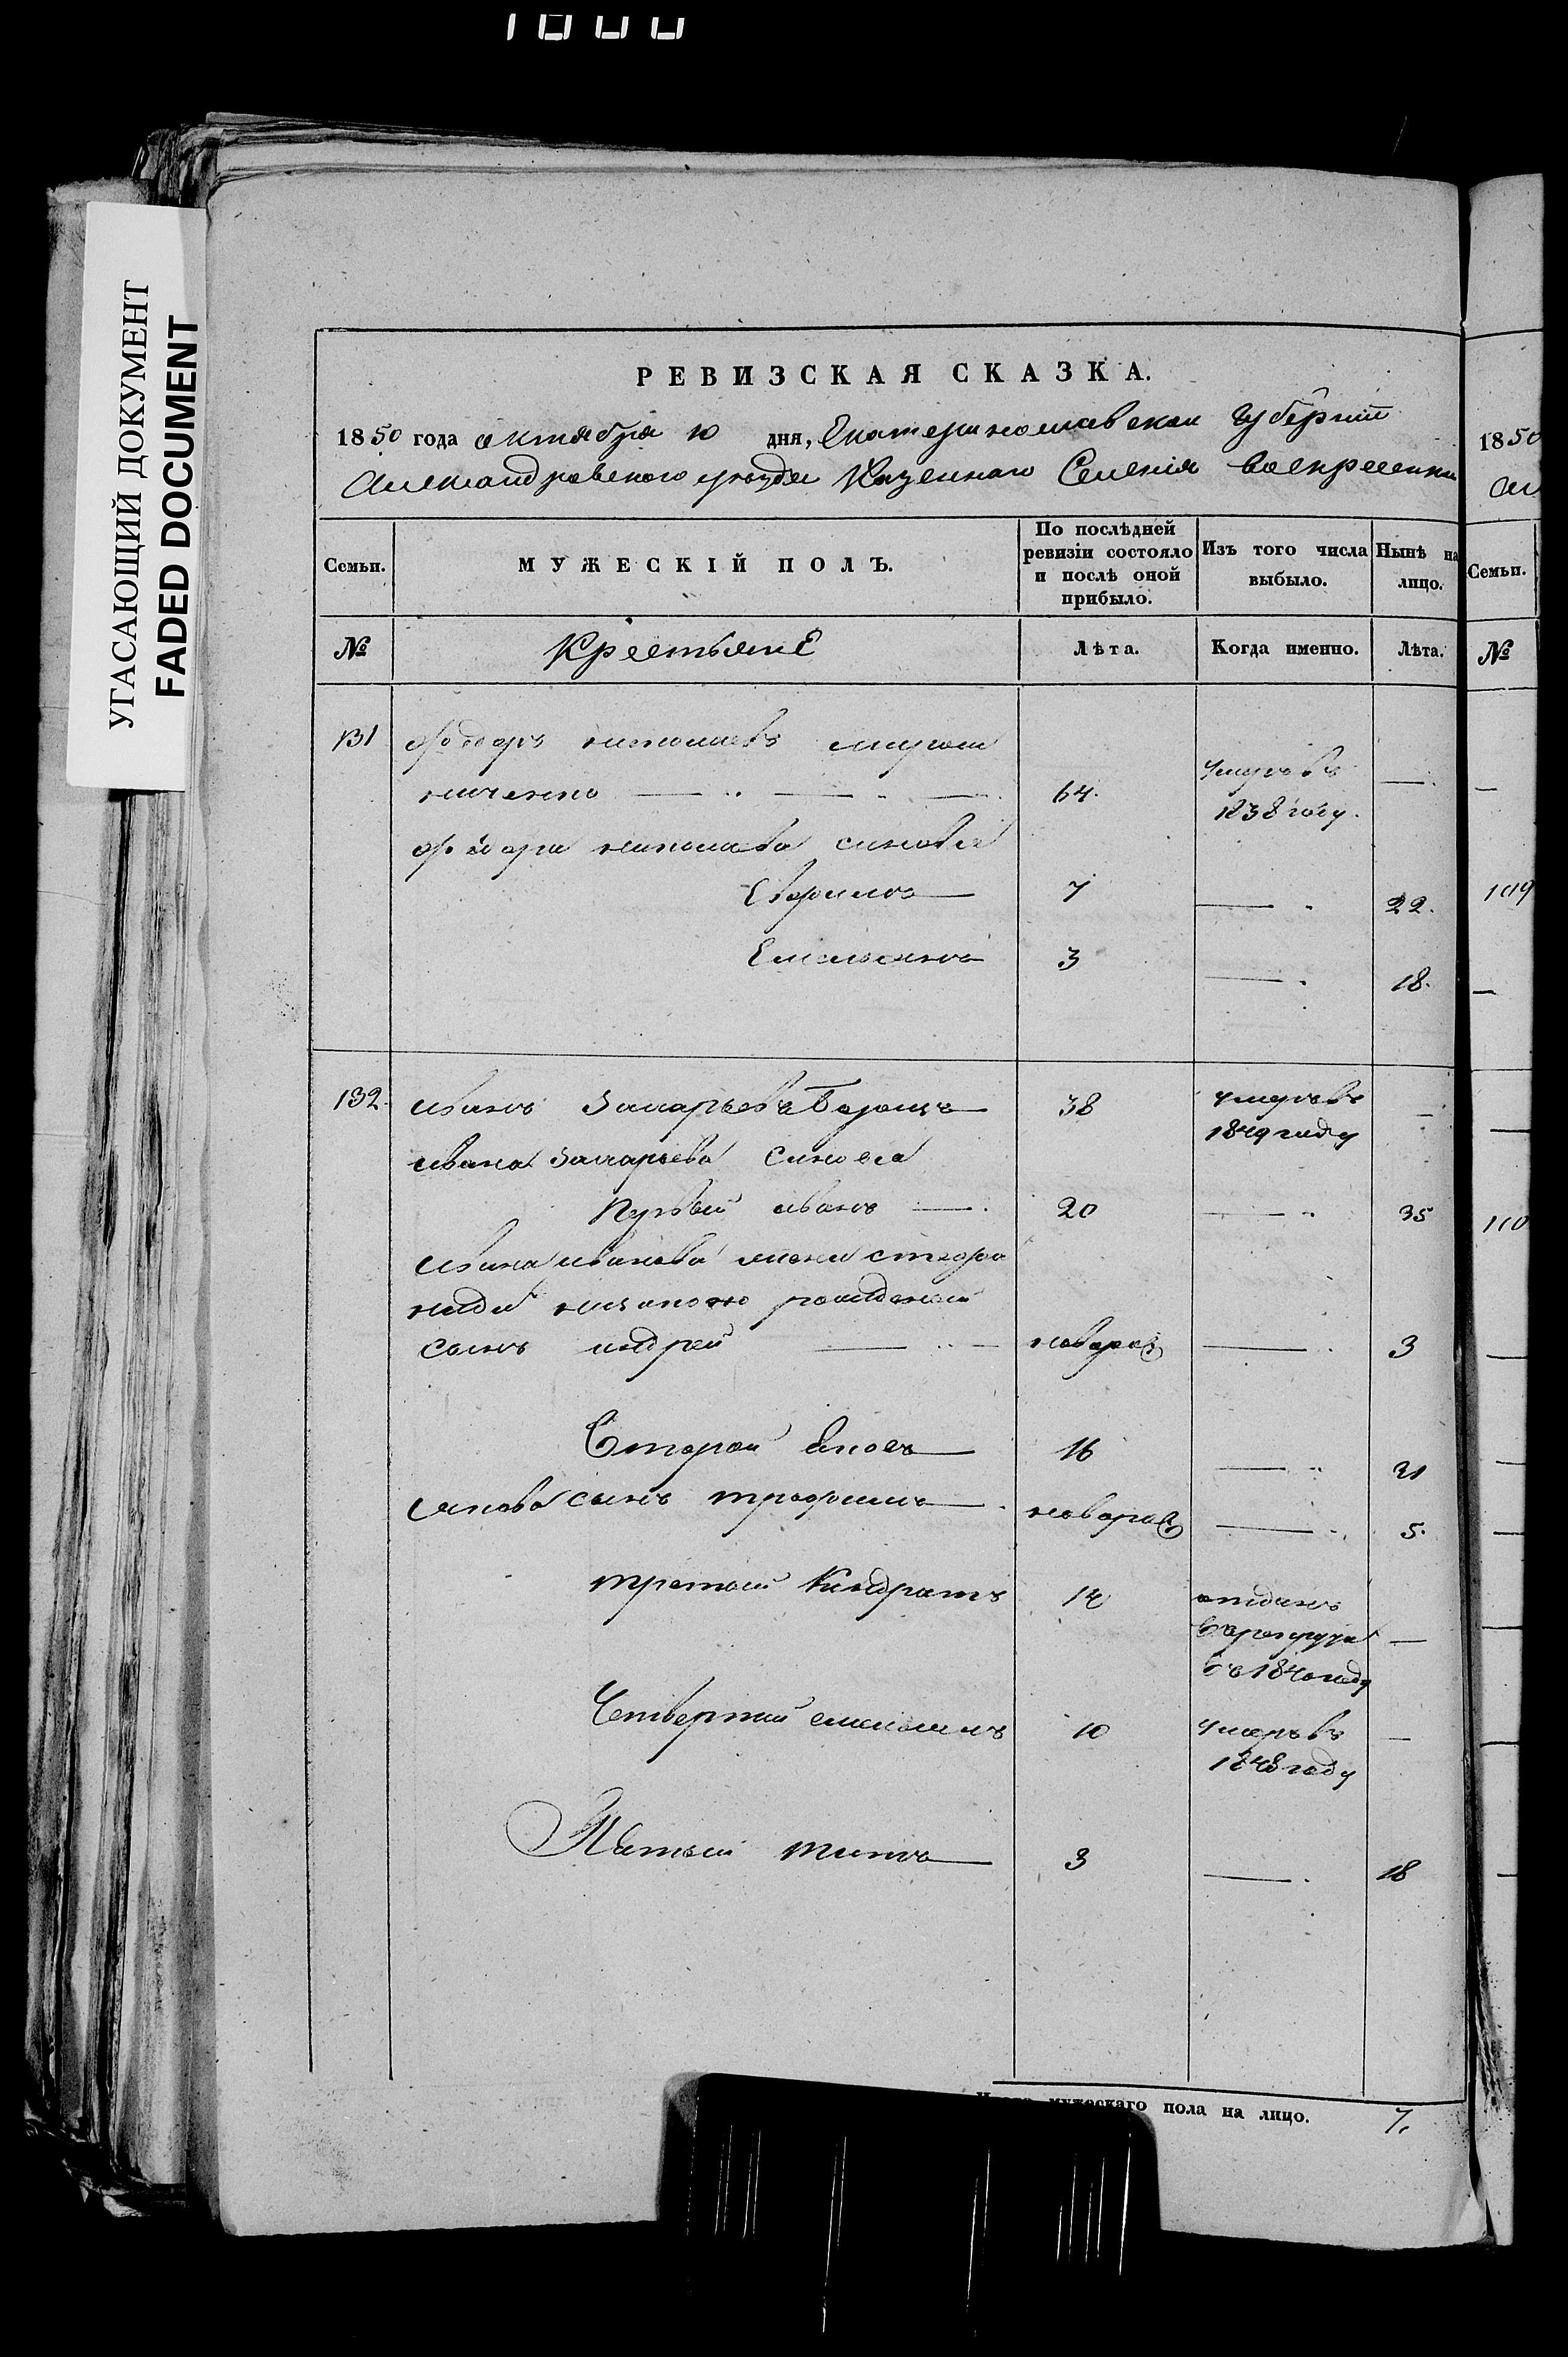 УГАСАЮЩИЙ ДОКУМЕНТ
FADED DOCUMENT
РЕВИЗСКАЯ СКАЗКА.
1850 года октября 10 дня, Екатеринославской Губернии
Александровского уезда Казенного Селения Воскресенки
Семьи. МУЖЕСКІЙ ПОЛЪ. По послѣдней ревизіи состояло и послѣ оной прибыло. Изъ того числа выбыло. Нынѣ на лицо.
№ Крестьяне Лѣта. Когда именно. Лѣта.
131 Федоръ николаевъ
ниченко 64. умеръ въ 1838 году. —
Федора николаева синовья
7 — 22.
Емельянъ 3 — 18.
132. иванъ Захарьевъ 38 умеръ въ 1849 году —
ивана Захарьева синовя
Первый иванъ — 20 — 35
ивана иванова
рожденый
сынъ андрей — новорож — 3
Второй Яковъ 16 — 31
Якова сынъ трофимъ новорож — 5.
третий Кондратъ 14 отданъ в рекруты въ 1840 году —
Четвертий 10 умеръ въ 1848 году —
Пятый титъ 3 — 18
мужескаго пола на лицо. 7.
1850
Семьи.
№
109
110